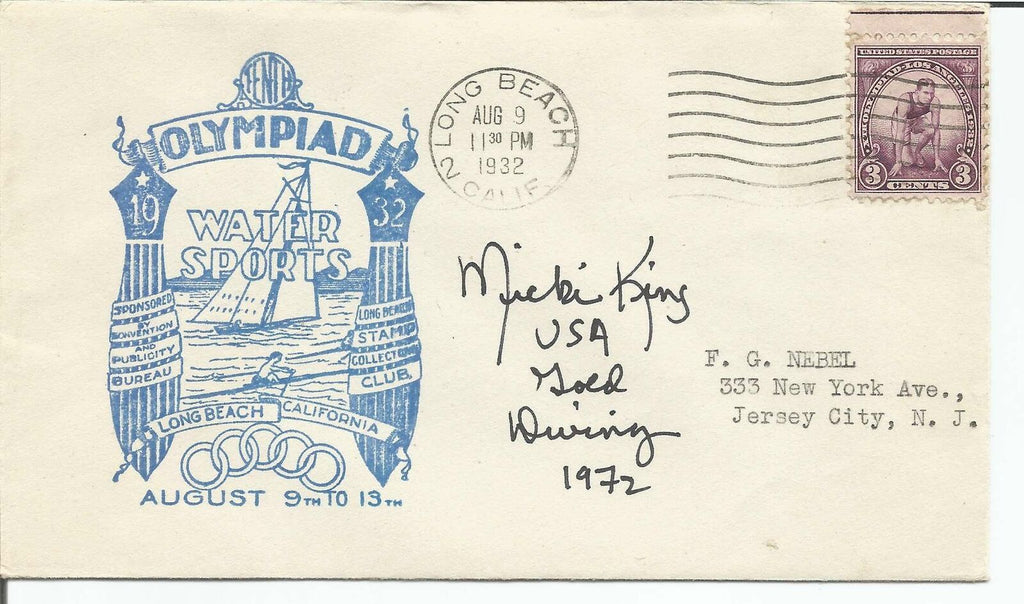 TENTH
OLYMPIAD
19 32
WATER
SPORTS
SPONSORED
BY
CONVENTION
AND
PUBLICITY
BUREAU
LONG BEACH
STAMP
COLLECTORS
CLUB
LONG BEACH CALIFORNIA
AUGUST 9TH TO 13TH
LONG BEACH
AUG 9
11 30 PM
1932
2 CALIF.
UNITED STATES POSTAGE
X TH OLYMPIAD-LOS ANGELES 1932
3 CENTS 3
Micki King
USA
Gold
Diving
1972
F. G. NEBEL
333 New York Ave.,
Jersey City, N. J.